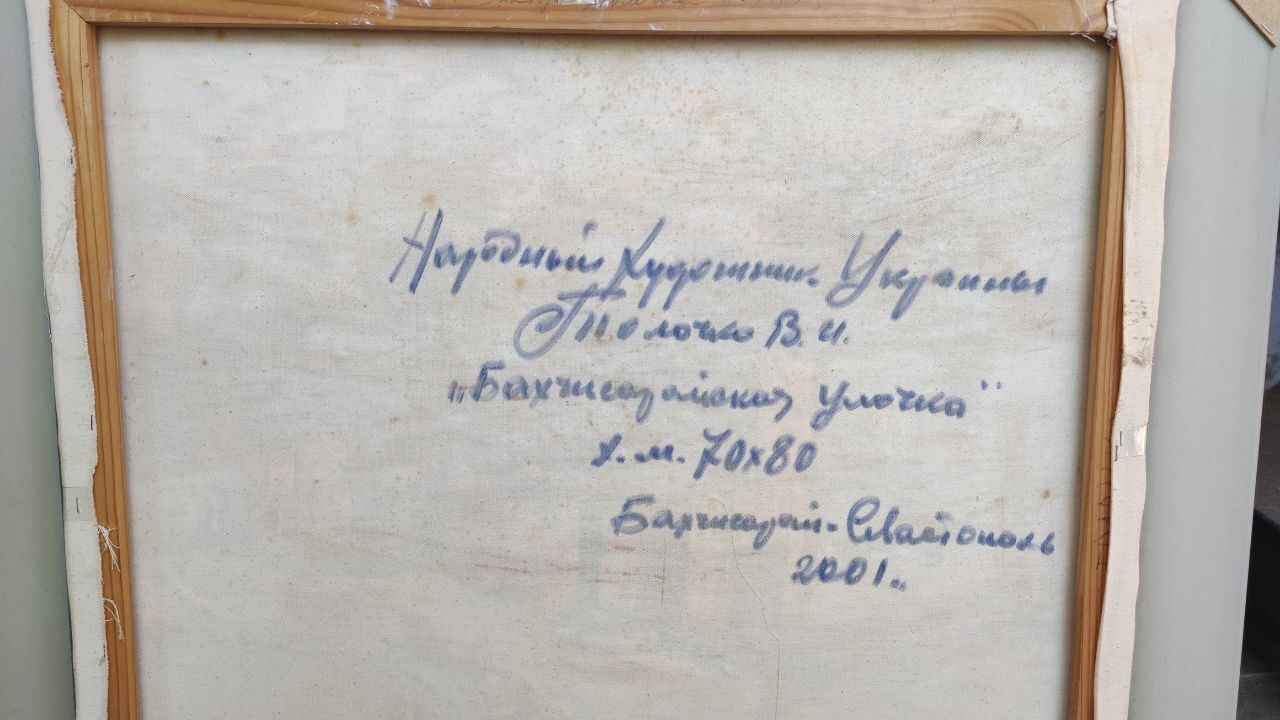 Народный Художник Украины
Толочко В.И.
„Бахчисарайская улочка"
х.м. 70х80
Бахчисарай-Севастополь
2001г.